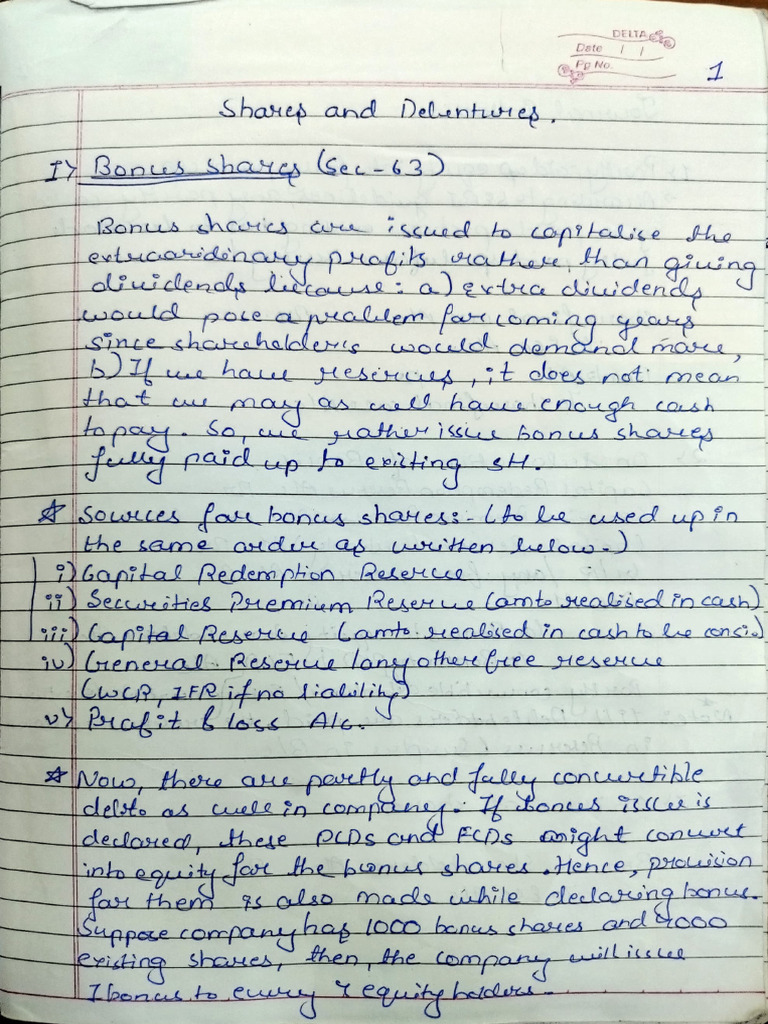 DELTA
Date / /
Pg No.
1
Shares and Debentures.
I> Bonus shares (Sec-63)
Bonus shares are issued to capitalise the
extraoridinary profits rather, than giving
dividends because: a) Extra dividends
would pose a problem for coming years
since shareholders would demand more,
b) If we have reserves, it does not mean
that we may as well have enough cash
to pay. So, we rather issue bonus shares
fully paid up to existing SH.
☆ Sources for bonus shares:- (to be used up in
the same order as written below.)
i) Capital Redemption Reserve
ii) Securities Premium Reserve (amt. realised in cash)
iii) Capital Reserve (amt. realised in cash to be consi.)
iv) General Reserve / any other free reserve
(WCR, IFR if no liability)
v> Profit & loss A/c.
☆ Now, there are partly and fully convertible
debt. as well in company. If bonus issue is
declared, these PCDs and FCDs might convert
into equity for the bonus shares. Hence, provision
for them is also made while declaring bonus.
Suppose company has 1000 bonus shares and 4000
existing shares, then, the company will issue
1 bonus to every 4 equity holders.